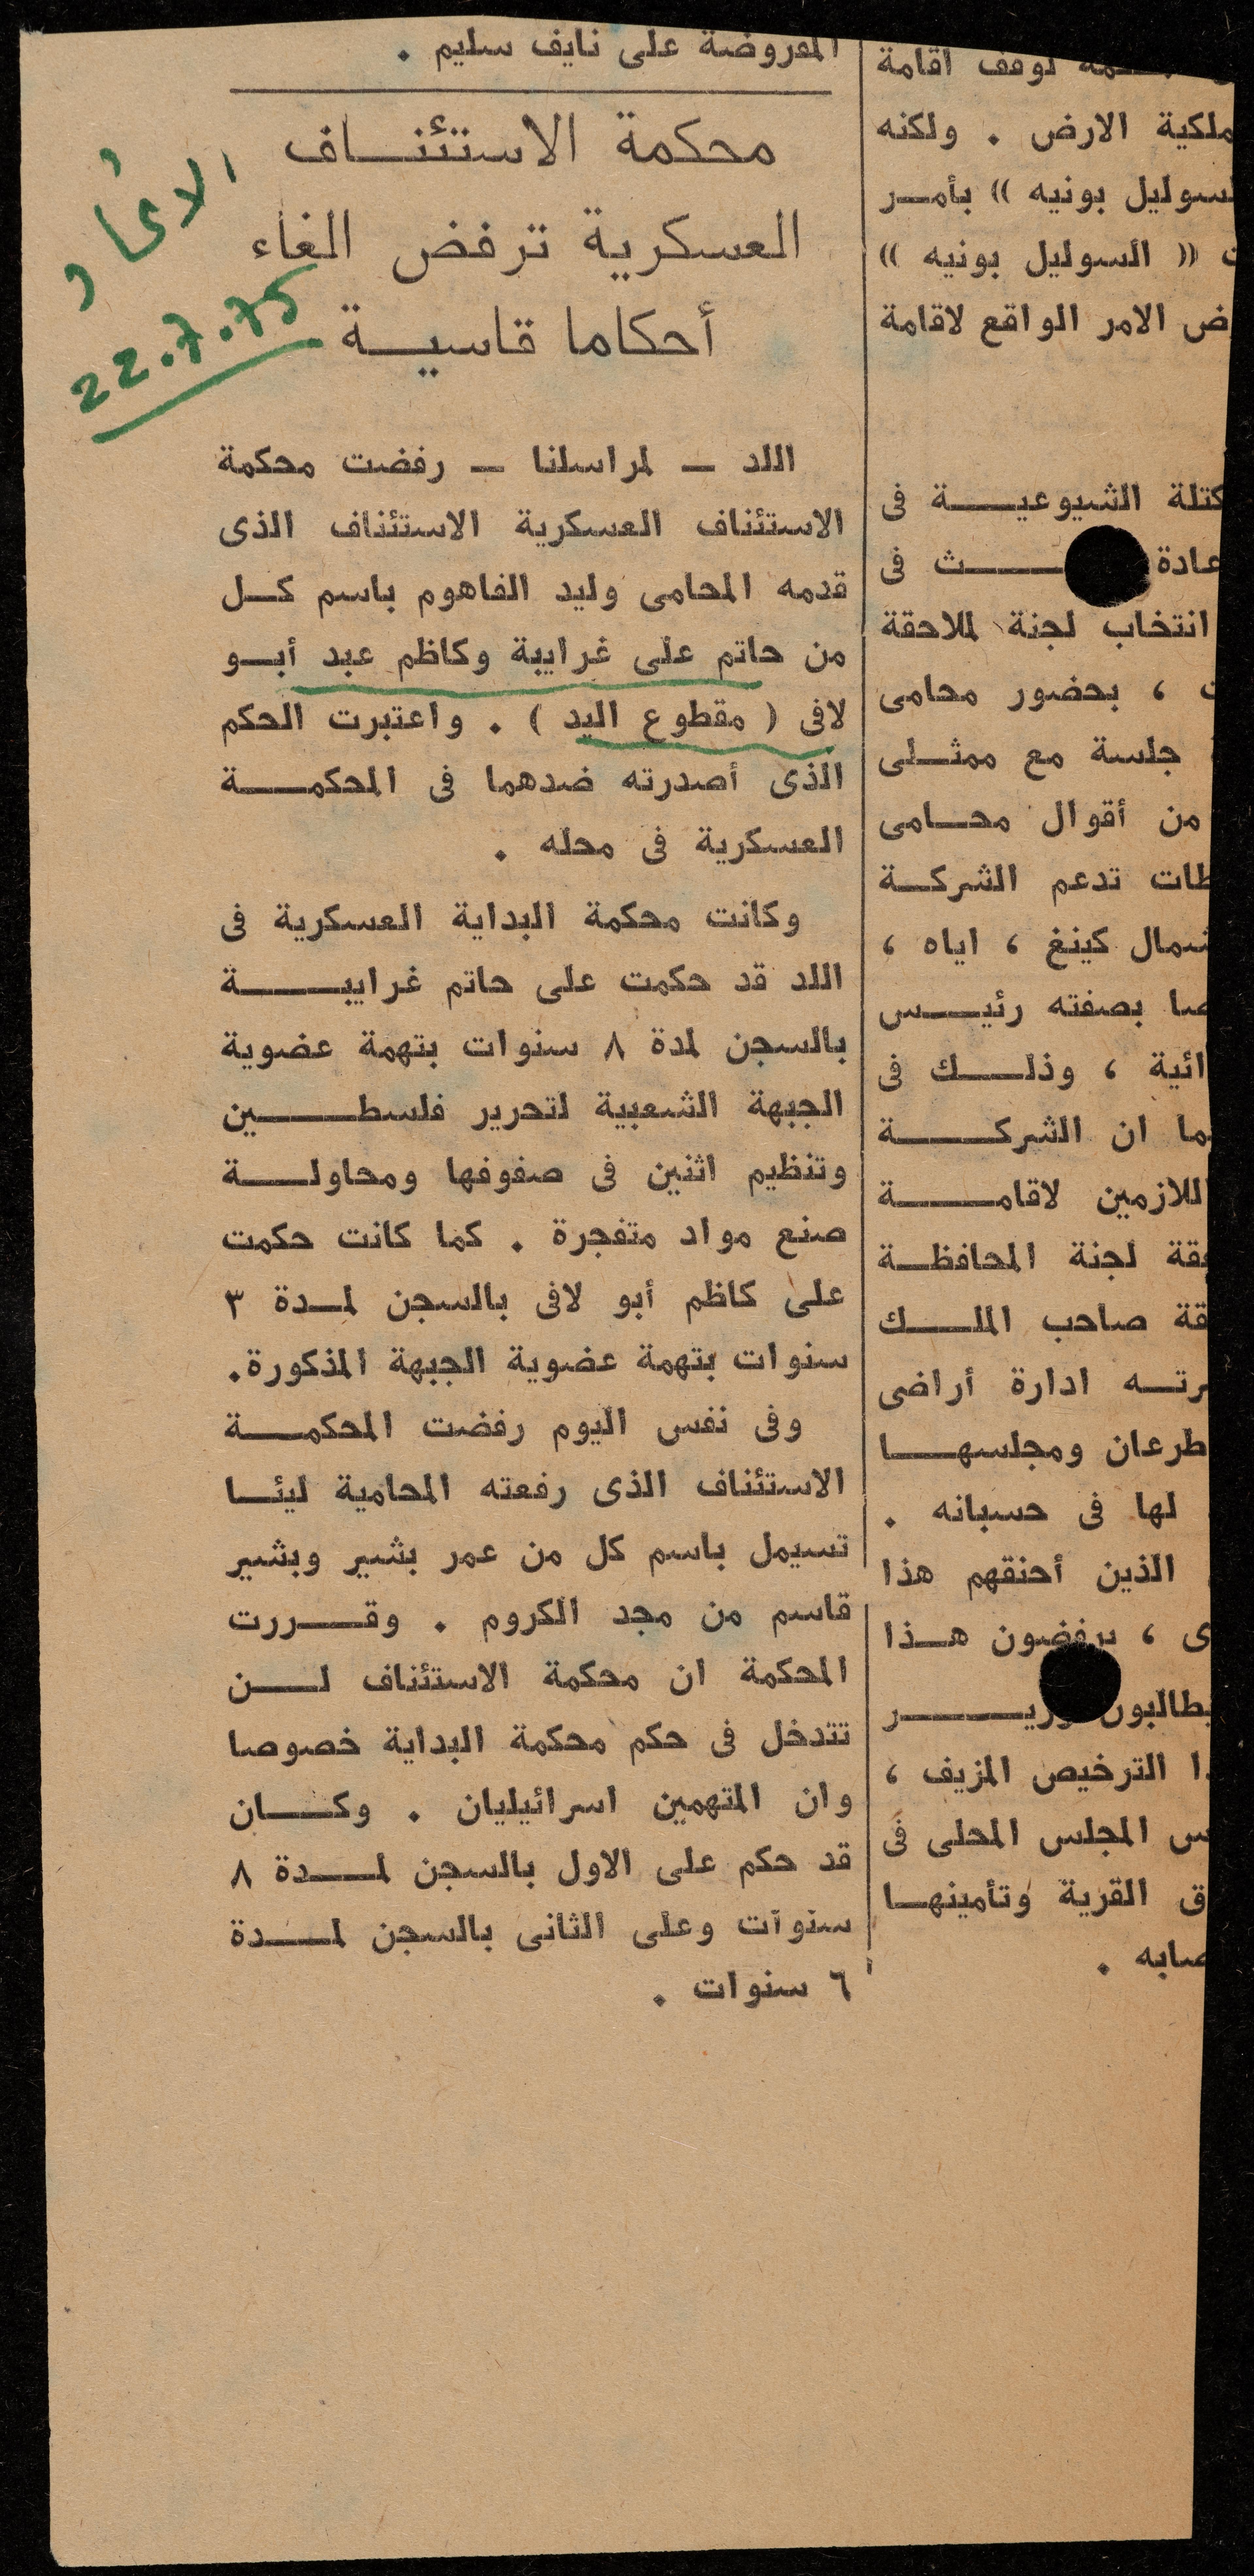 المفروضة على نايف سليم .
محكمة الاستئنـــاف
العسكرية ترفض الغاء
أحكاما قاسيـــة
22.7.75
اللد ــ لمراسلنا ــ رفضت محكمة
الاستئناف العسكرية الاستئناف الذى
قدمه المحامى وليد الفاهوم باسم كــل
من حاتم على غرايبة وكاظم عبد أبــو
لافى ( مقطوع اليد ) . واعتبرت الحكم
الذى أصدرته ضدهما فى المحكمـــة
العسكرية فى محله .
وكانت محكمة البداية العسكرية فى
اللد قد حكمت على حاتم غرايبـــــة
بالسجن لمدة ٨ سنوات بتهمة عضوية
الجبهة الشعبية لتحرير فلسطـــــين
وتنظيم اثنين فى صفوفها ومحاولـــة
صنع مواد متفجرة . كما كانت حكمت
على كاظم أبو لافى بالسجن لمــدة ٣
سنوات بتهمة عضوية الجبهة المذكورة.
وفى نفس اليوم رفضت المحكمـــة
الاستئناف الذى رفعته المحامية ليئــا
تسيمل باسم كل من عمر بشير وبشير
قاسم من مجد الكروم . وقــــررت
المحكمة ان محكمة الاستئناف لـــن
تتدخل فى حكم محكمة البداية خصوصا
وان المتهمين اسرائيليان . وكـــان
قد حكم على الاول بالسجن لمـــدة ٨
سنوات وعلى الثانى بالسجن لمـــدة
٦ سنوات .
لوقف اقامة
ملكية الارض . ولكنه
لسوليل بونيه )) بأمــر
(( السوليل بونيه ))
الامر الواقع لاقامة
كتلة الشيوعيـــــة فى
فى
انتخاب لجنة لملاحقة
، بحضور محامى
جلسة مع ممثــلى
من أقوال محــامى
تدعم الشركــة
شمال كينغ ، اياه ،
بصفته رئيـــس
، وذلـــك فى
ان الشركـــــة
اللازمين لاقامـــــة
لجنة المحافظــة
صاحب الملـــك
ادارة أراضى
طرعان ومجلسهــــا
لها فى حسبانه .
الذين أحنقهم هذا
، يرفضون هــذا
يطالبون
الترخيص المزيف ،
المجلس المحلى فى
القرية وتأمينهــا